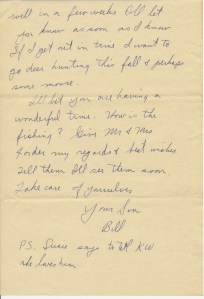 well in a few weeks I'll let
you know as soon as I know
If I get out in time I want to
go deer hunting this fall & perhaps
some moose.
I'll bet you are having a
wonderful time. How is the
fishing? Give Mr & Mrs
my regards & best wishes
Tell them I'll see them soon
Take care of yourselves
Your Son
Bill
P.S. Susie says to tell KW
she loves him